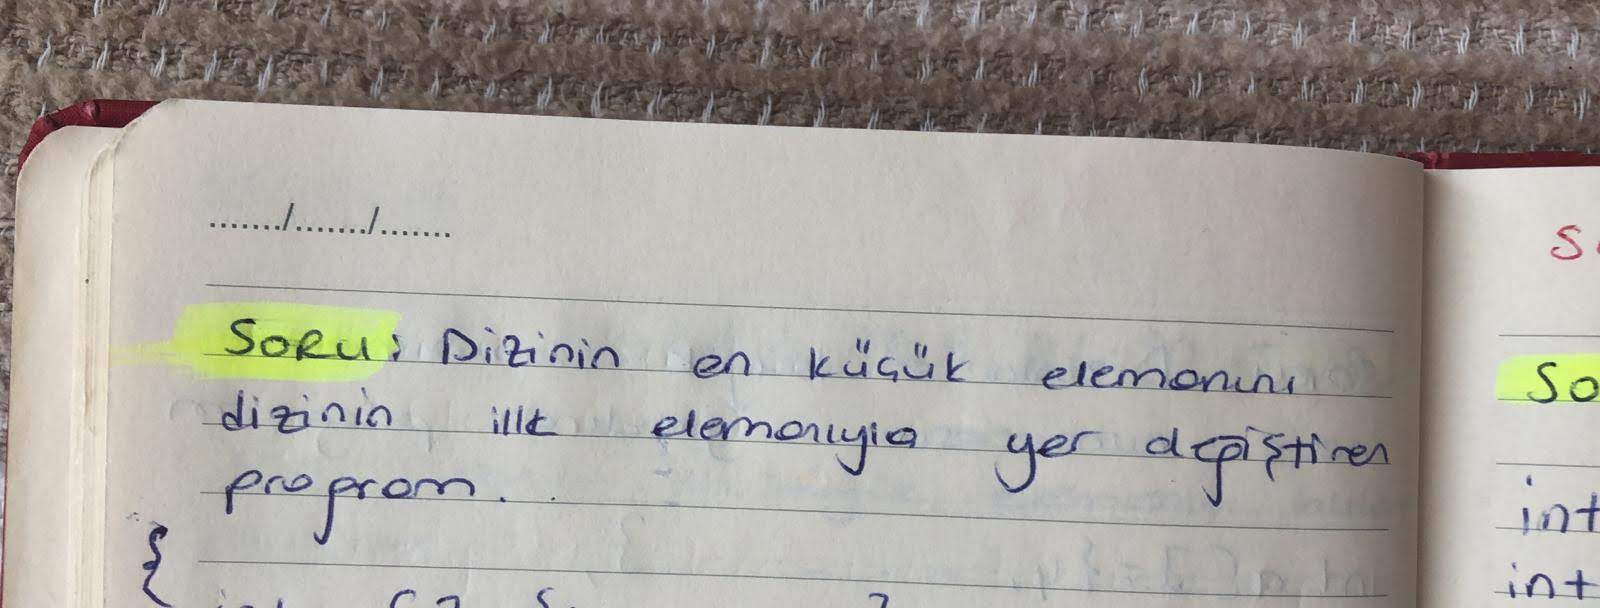 ......./......./.......
SORU: Dizinin en küçük elemanını
dizinin ilk elemanıyla yer değiştiren
program.
{
int
So
int
int